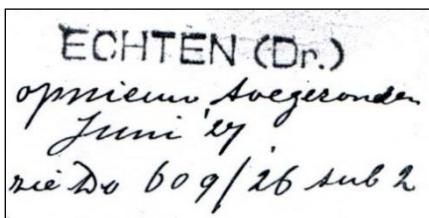 ECHTEN (Dr.)
opnieuw toegezonden
Juni '27
zie Do 609/26 sub 2